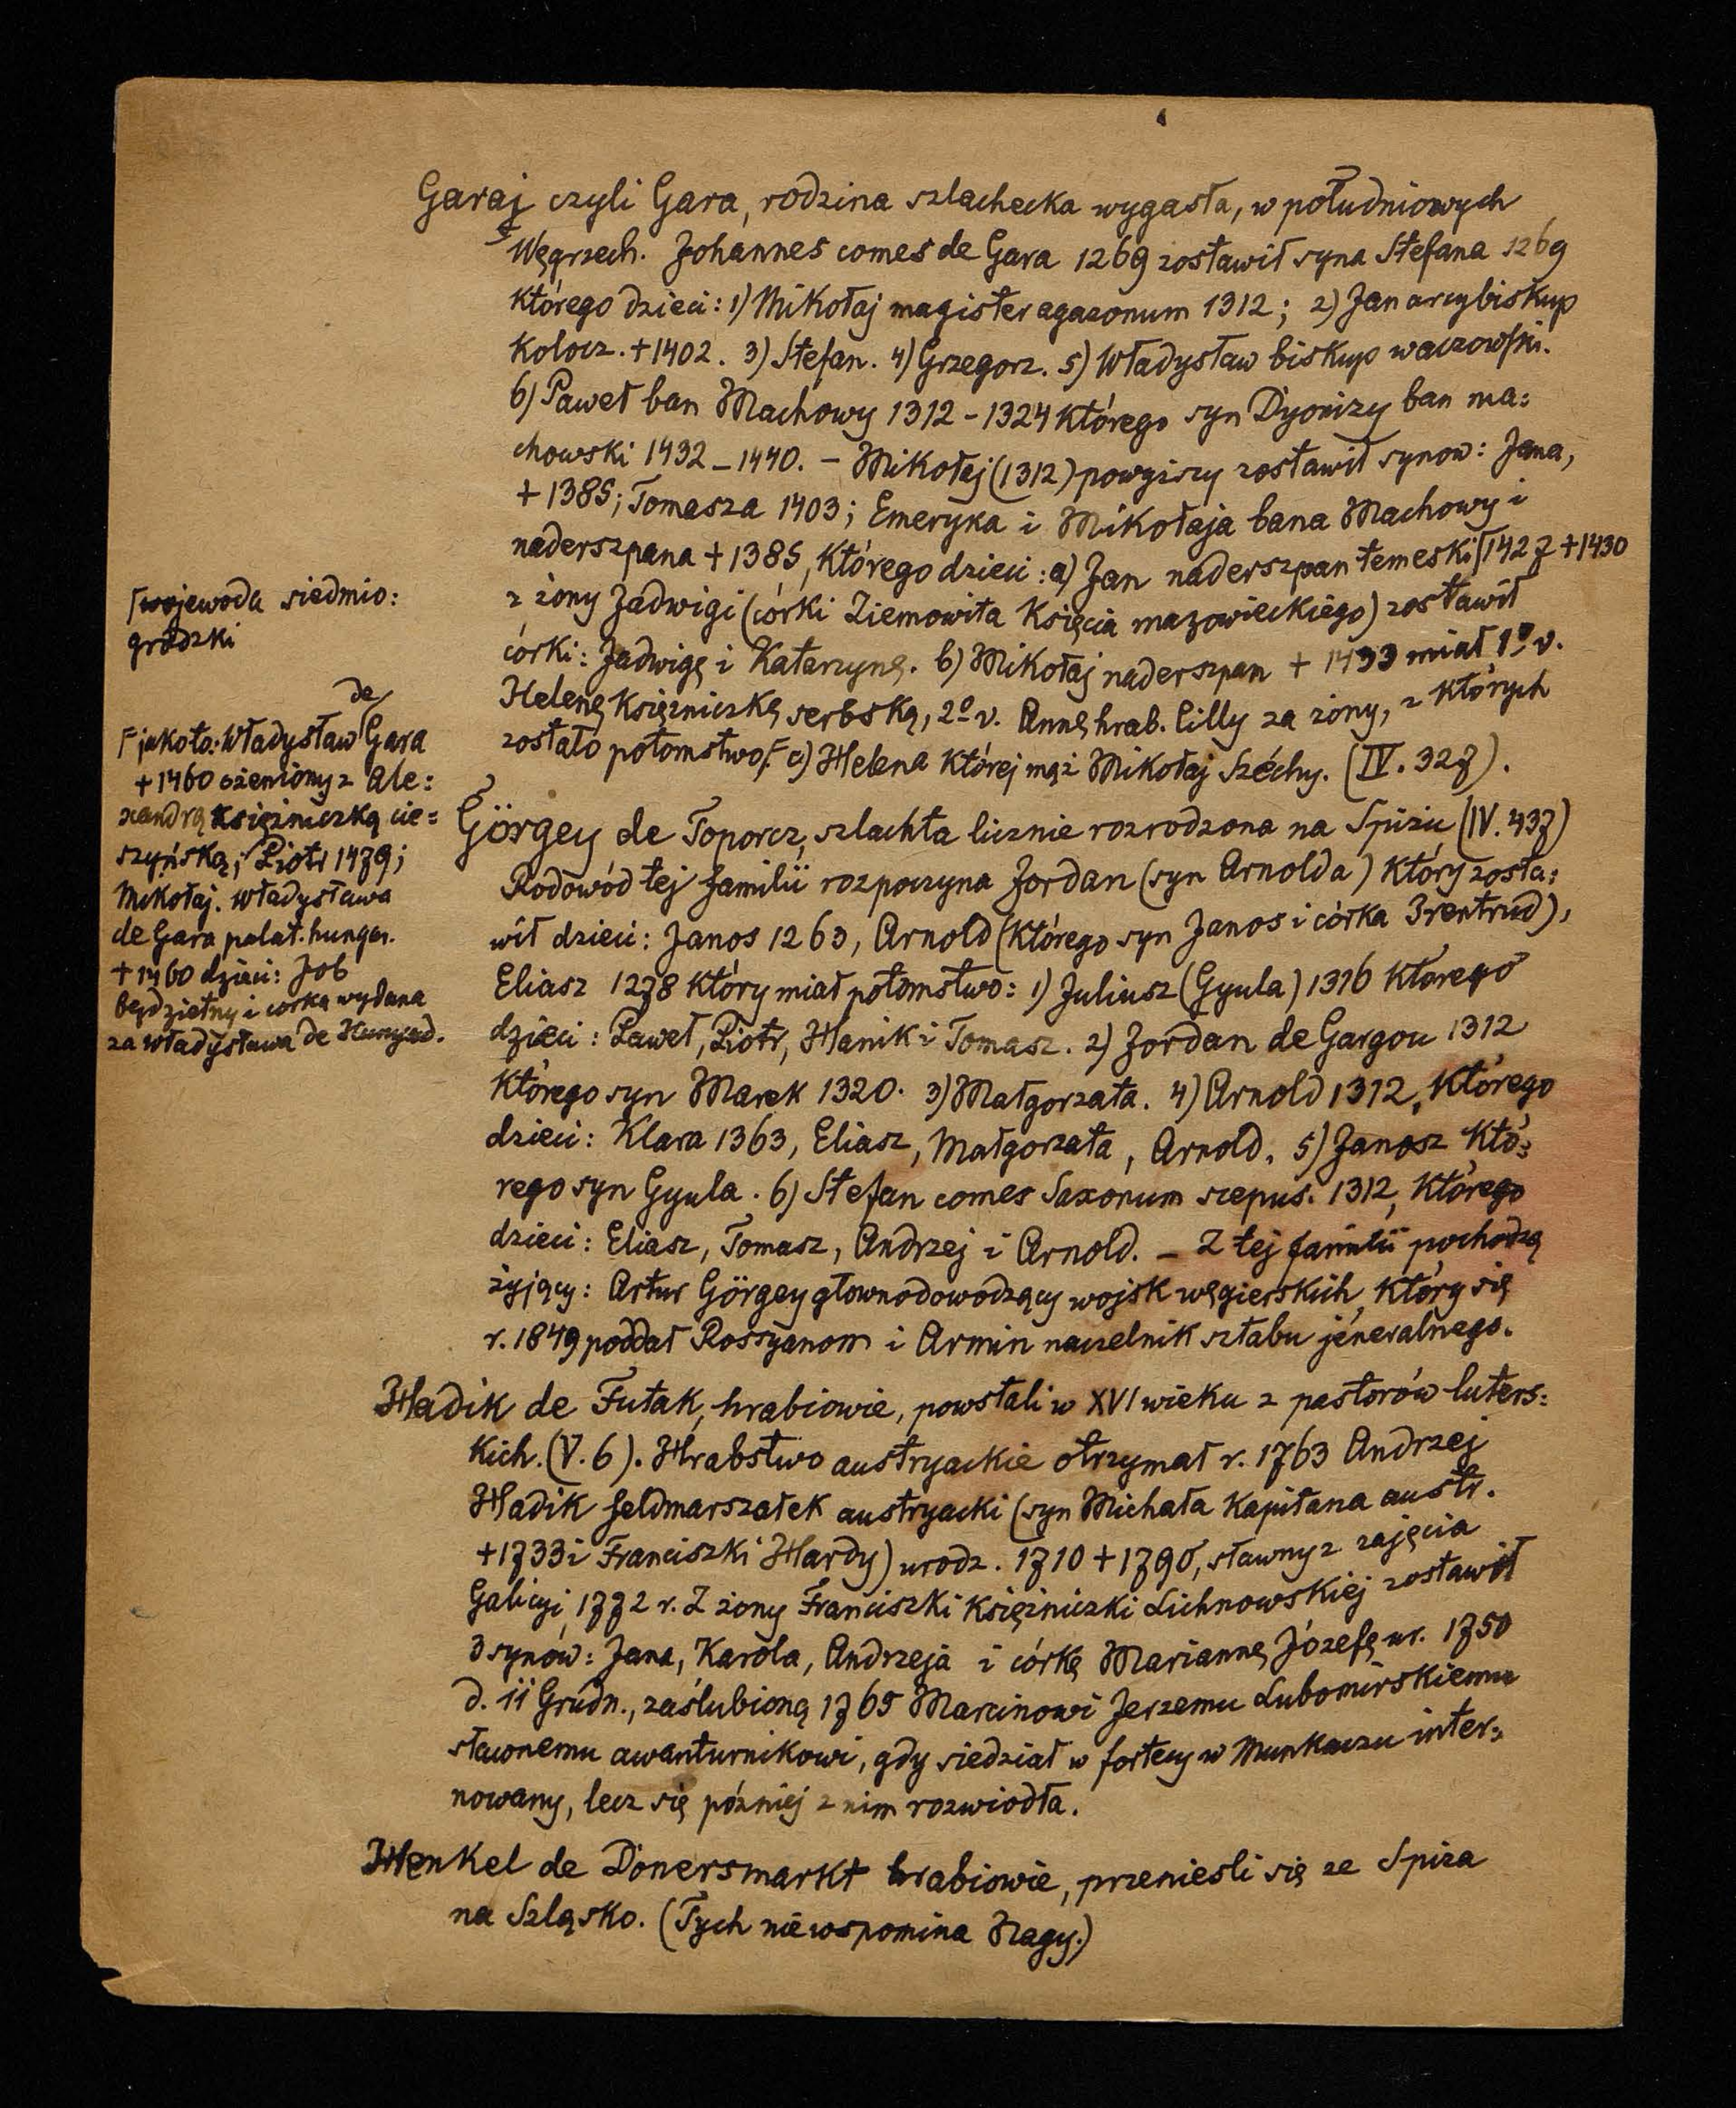 Garaj czyli Gara, rodzina szlachecka wygasła, w południowych
Węgrzech. Johannes comes de Gara 1269 zostawił syna Stefana 1269
którego dzieci: 1) Mikołaj magister agazonum 1312; 2) Jan arcybiskup
Kolocz. +1402. 3) Stefan. 4) Grzegorz. 5) Władysław biskup waczowski.
6) Paweł ban Machowy 1312-1324 którego syn Dyonizy ban ma:
chowski 1432-1440. - Mikołaj (1312) powyższy zostawił synow: Jana,
+1385; Tomasza 1403; Emeryka i Mikołaja bana Machowy i
naderszpana +1385, którego dzieci: a) Jan naderszpan temeski 1427 +1430
z żony Jadwigi (córki Ziemowita Księcia mazowieckiego) zostawił
córki: Jadwigę i Katarzynę. b) Mikołaj naderszpan + 1433 miał 1º v.
Helenę Księżniczkę serbską, 2º v. Annę hrab. Cilly za żony, z których
zostało potomstwo. c) Helena której mąż Mikołaj Széchy. (IV. 327).
wojewoda siedmio:
grodzki
jakoto: Władysław de Gara
+1460 ożeniony z Ale:
xandrą Księżniczką cie:
szyńską; Piotr 1479;
Mikołaj. Władysława
de Gara palat. hungar.
+1460 dzieci: Job
bezdzietny i córka wydana
za Władysława de Hunyad.
Görgey de Toporcz, szlachta licznie rozrodzona na Spiżu (IV. 437)
Rodowód tej familii rozpoczyna Jordan (syn Arnolda) który zosta:
wił dzieci: Janos 1263, Arnold (którego syn Janos i córka Irentrud),
Eliasz 1278 który miał potomstwo: 1) Juliusz (Gyula) 1316 którego
dzieci: Paweł, Piotr, Hanik i Tomasz. 2) Jordan de Gargou 1312
którego syn Marek 1320. 3) Małgorzata. 4) Arnold 1312, którego
dzieci: Klara 1363, Eliasz, Małgorzata, Arnold. 5) Janosz któ:
rego syn Gyula. 6) Stefan comes Saxonum scepus. 1312, którego
dzieci: Eliasz, Tomasz, Andrzej i Arnold. - Z tej familii pochodzą
żyjący: Artur Görgey głownodowodzący wojsk węgierskich, który się
r. 1849 poddał Rossyanom i Armin naczelnik sztabu jeneralnego.
Hadik de Futak, hrabiowie, powstali w XVI wieku z pastorów luters:
kich. (V. 6). Hrabstwo austryackie otrzymał r. 1763 Andrzej
Hadik feldmarszałek austryacki (syn Michała Kapitana austr.
+1733 i Franciszki Hardy) urodz. 1710 +1790, sławny z zajęcia
Galicyi 1772 r. Z żony Franciszki Księżniczki Lichnowskiej zostawił
3 synów: Jana, Karola, Andrzeja i córkę Mariannę Józefę ur. 1750
d. 11 Grudn., zaślubioną 1765 Marcinowi Jerzemu Lubomirskiemu
sławnemu awanturnikowi, gdy siedział w fortecy w Munkaczu inter:
nowany, lecz się później z nim rozwiodła.
Henkel de Donersmarkt hrabiowie, przeniesli się ze Spiża
na Szląsko. (Tych nie wspomina Nagy.)